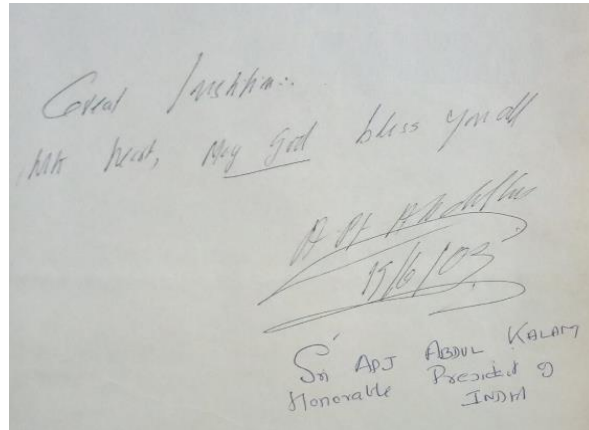 Great Institution
with heart, May God bless you all
A P J Abdul Kalam
15/6/03
Sri APJ ABDUL KALAM
Honorable President of
INDIA